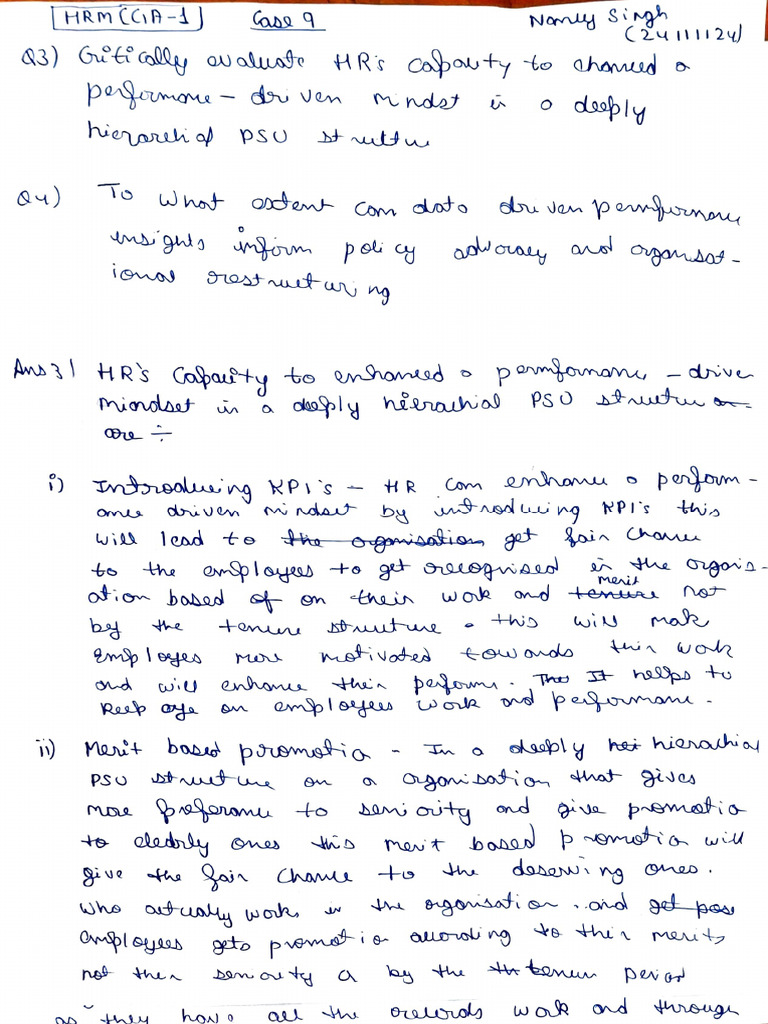 HRM (CIA-1) Case 9 Nancy Singh
(24111124)
Q3) Critically evaluate HR's capacity to chanced a
performane - driven mindset in a deeply
hierarchial PSU structure
Q4) To what extent can data driven permfurmane
insights inform policy advocacy and organisat-
ional restructuring
Ans 3| HR's capacity to enhanced a permformane - driven
mindset in a deeply hierachial PSU structure
are ÷
i) Introducing KPI's - HR can enhance a perform-
ance driven mindset by introducing KPI's this
will lead to the organisation get fair chance
to the employees to get recognised in the organis-
ation based of on their work and tenure merit not
by the tenure structure. this will make
employes more motivated towards their work
and will enhance their perform. The It helps to
keep eye on employees work and performane.
ii) Merit based promotio - In a deeply hei hierachial
PSU structure on a organisation that gives
more preferance to seniority and give promotio
to eledrly ones this merit based promotio will
give the fair chance to the deserving ones.
who actually works in the organisation. and get pos
employees gets promotio according to their merits
not their seniority a by the tenure period
as they have all the records work and through